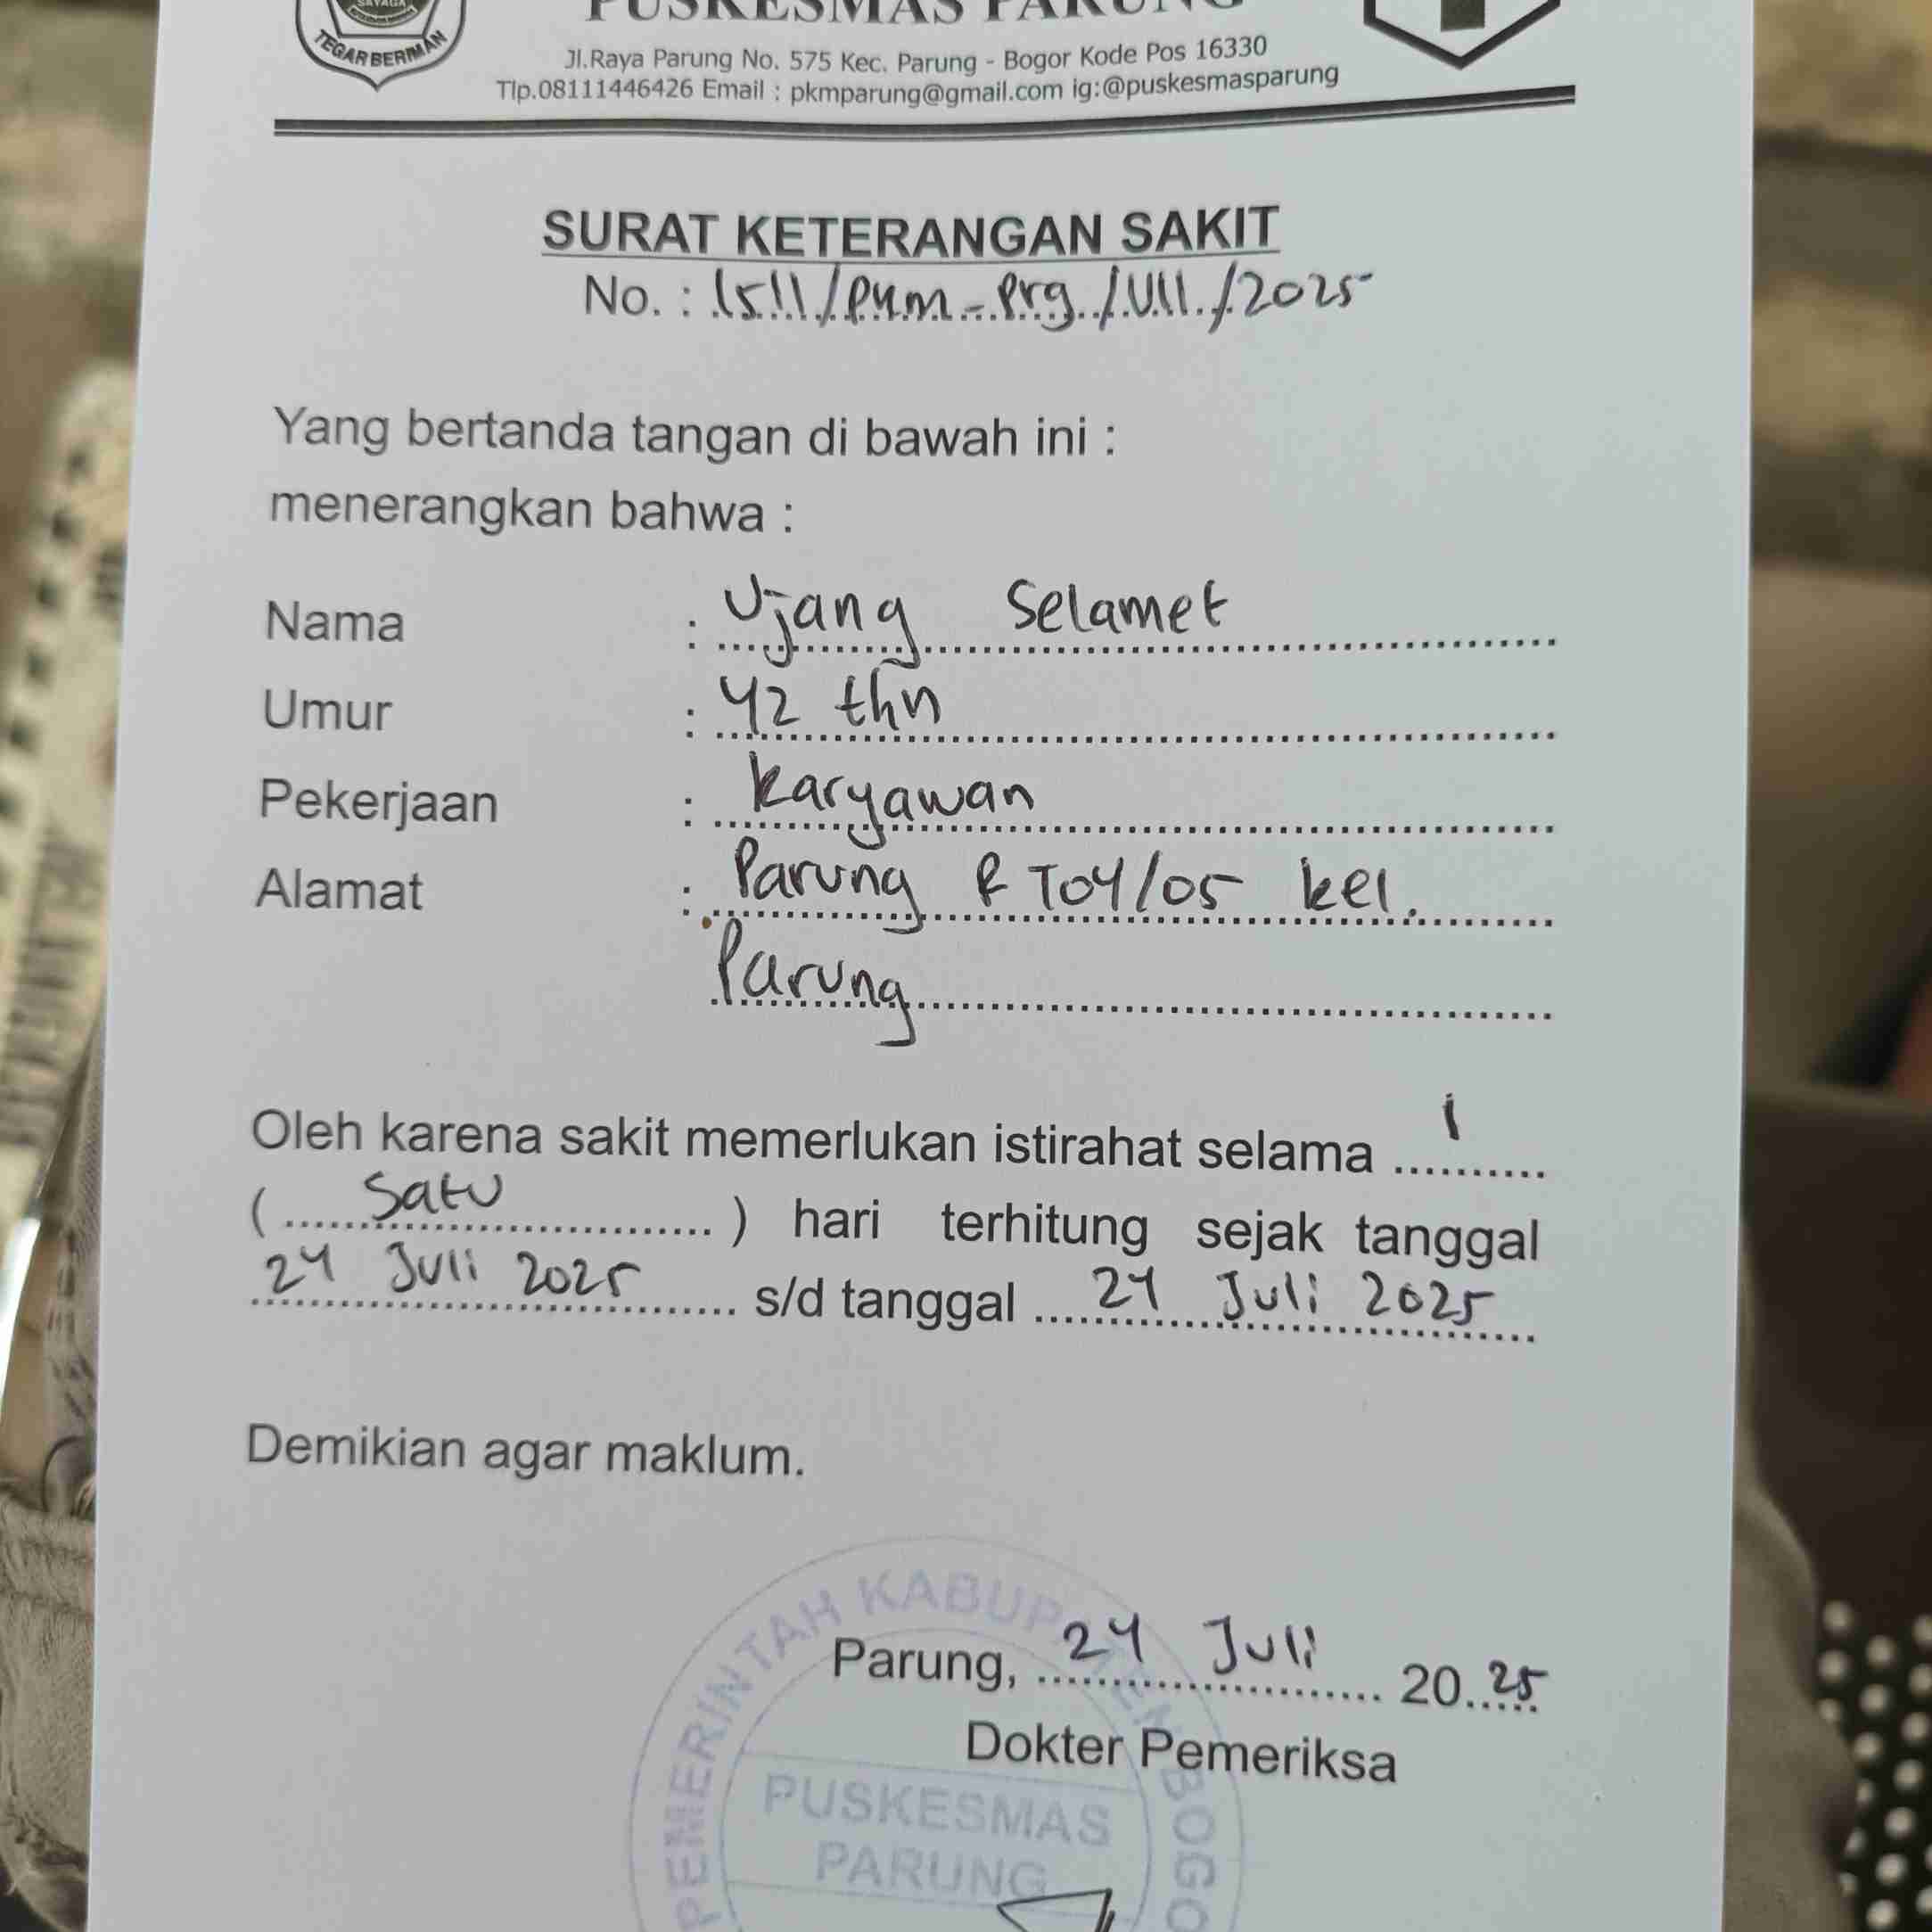 SAYAGA
TEGAR BERIMAN
PUSKESMAS PARUNG
Jl.Raya Parung No. 575 Kec. Parung - Bogor Kode Pos 16330
Tlp.08111446426 Email : pkmparung@gmail.com ig:@puskesmasparung
SURAT KETERANGAN SAKIT
No. : 1511/PKM-Prg./VII./2025
Yang bertanda tangan di bawah ini :
menerangkan bahwa :
Nama : Ujang Selamet
Umur : 42 thn
Pekerjaan : Karyawan
Alamat : Parung RT04/05 kel.
Parung
Oleh karena sakit memerlukan istirahat selama 1
( Satu ) hari terhitung sejak tanggal
24 Juli 2025 s/d tanggal 24 Juli 2025
Demikian agar maklum.
Parung, 24 Juli 2025
Dokter Pemeriksa
PEMERINTAH KABUPATEN BOGO
PUSKESMAS
PARUNG